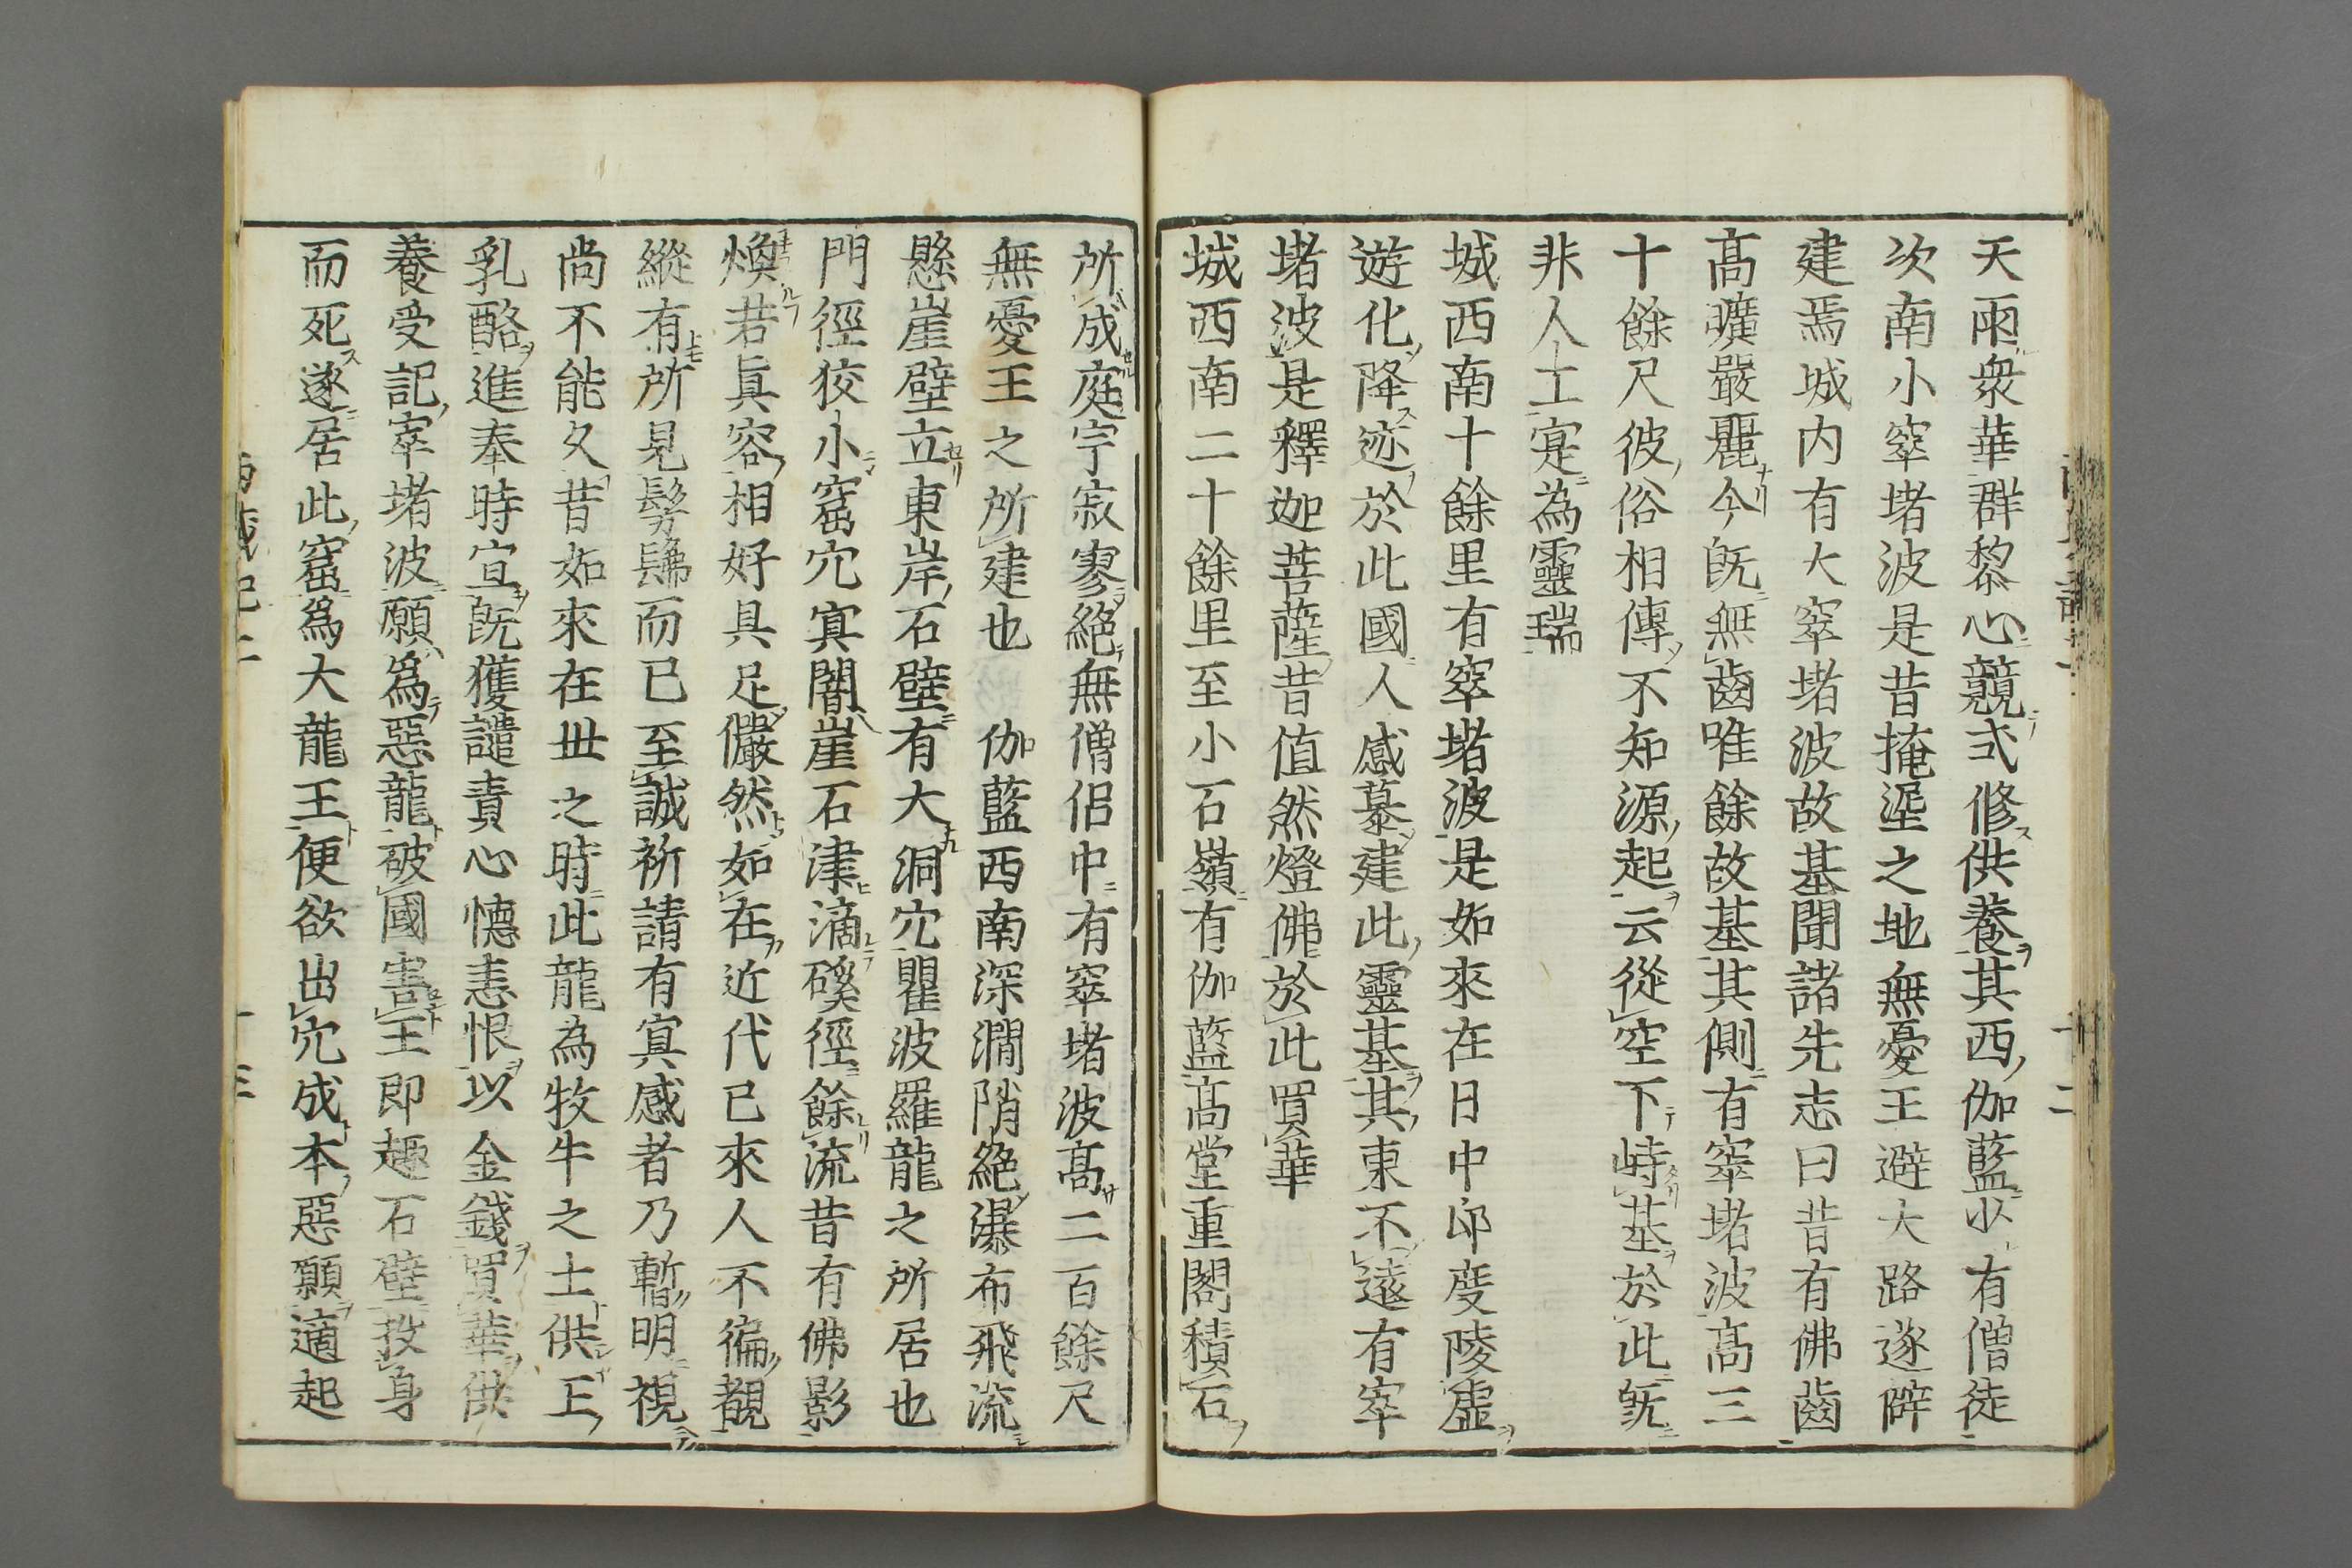 天雨衆華群黎心競式修供養其西伽藍少有僧徒
次南小窣堵波是昔掩埿之地無憂王避大路遂僻
建焉城内有大窣堵波故基聞諸先志曰昔有佛齒
髙曠嚴麗今旣無齒唯餘故基其側有窣堵波髙三
十餘尺彼俗相傳不知源起云從空下峙基於此旣
非人工寔為靈瑞
城西南十餘里有窣堵波是如來在日中印度陵虛
遊化降迹於此國人感慕建此靈基其東不遠有窣
堵波是釋迦菩薩昔值然燈佛於此買華
城西南二十餘里至小石嶺有伽藍髙堂重閣積石
所成庭宇寂寥絕無僧侶中有窣堵波髙二百餘尺
無憂王之所建也 伽藍西南深澗陗絕瀑布飛流
懸崖壁立東岸石壁有大洞穴瞿波羅龍之所居也
門徑狡小窟穴冥闇崖石津滴磎徑餘流昔有佛影
煥若眞容相好具足儼然如在近代已來人不徧覩
縱有所見髣髴而已至誠祈請有冥感者乃暫明視
尚不能久昔如來在世之時此龍為牧牛之士供王
乳酪進奉時宜旣獲譴責心懷恚恨以金錢買華供
養受記窣堵波願爲惡龍破國害王即趣石壁投身
而死遂居此窟爲大龍王便欲出穴成本惡願適起
西域記二
十三
十二